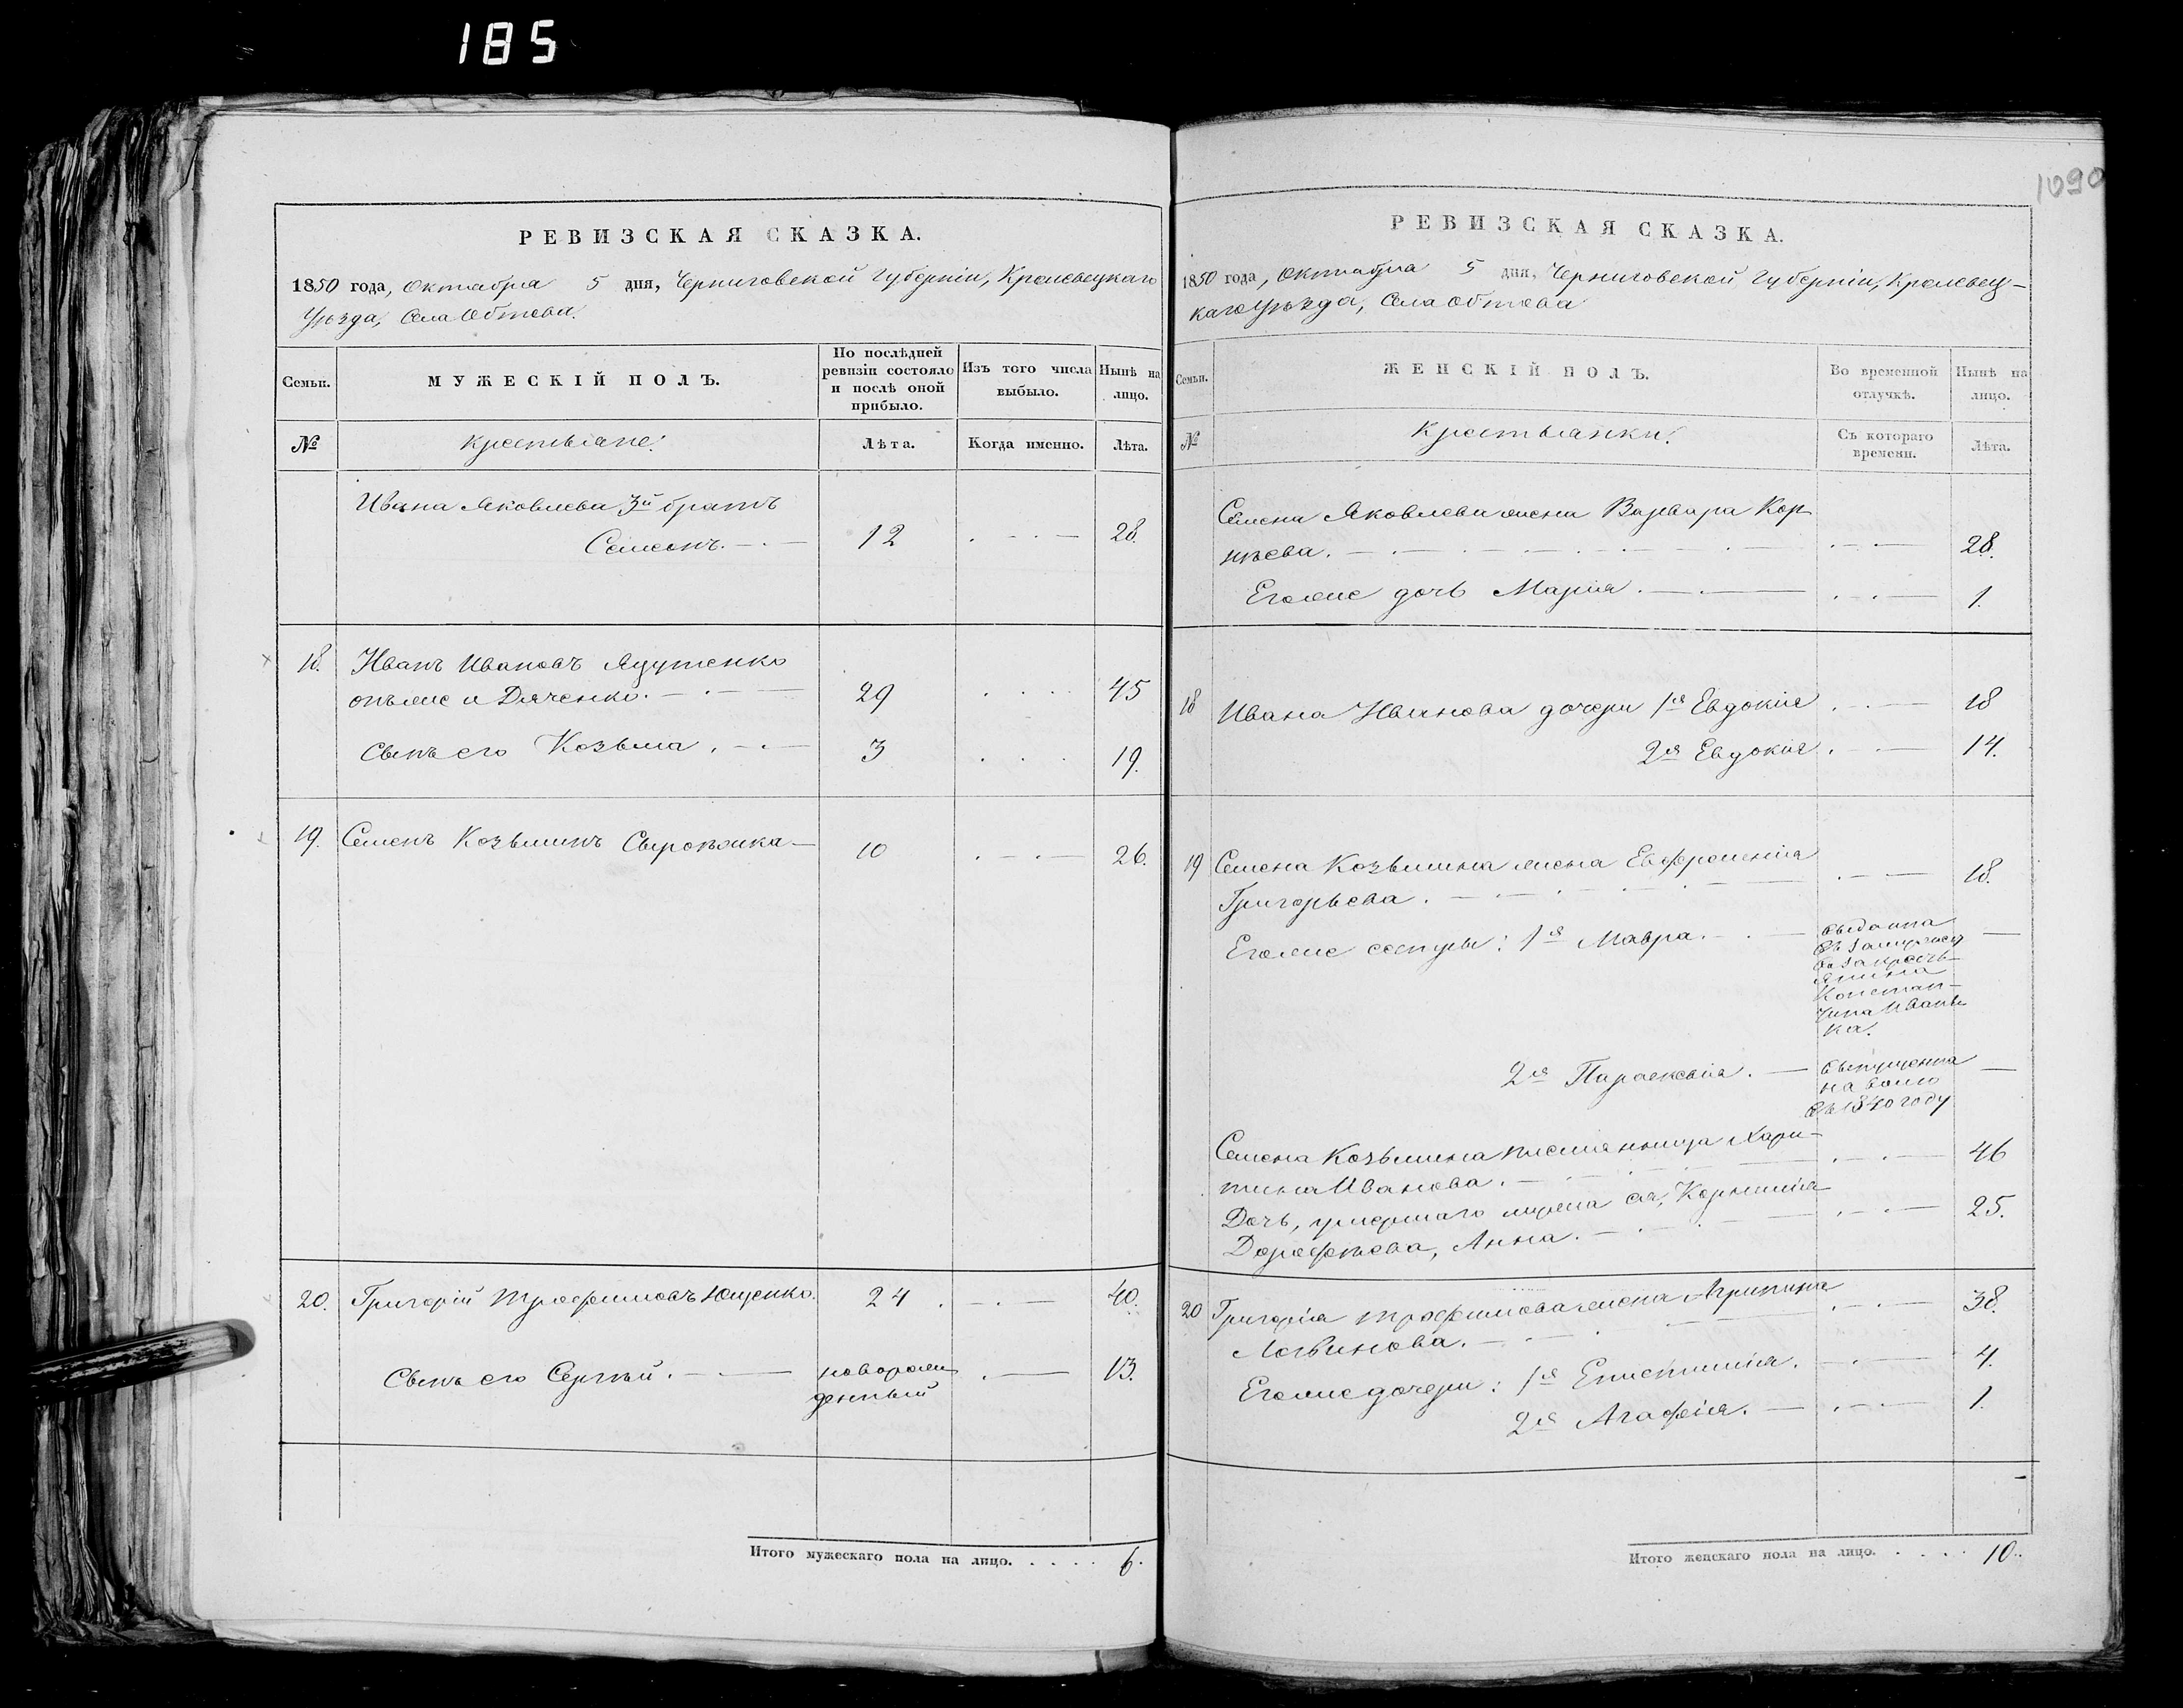 185
1090
РЕВИЗСКАЯ СКАЗКА.
1850 года, Октября 5 дня, Черниговской Губерніи, Кролевецкаго
Уѣзда, Села Обтова.
Семьи.
МУЖЕСКІЙ ПОЛЪ.
По послѣдней ревизіи состояло и послѣ оной прибыло.
Изъ того числа выбыло.
Нынѣ на лицо.
№
Крестьяне:
Лѣта.
Когда именно.
Лѣта.
Ивана Яковлева 3й братъ
Семенъ. 12 28.
18. Иванъ Ивановъ
онъже и Дяченко. 29 45
Сынъ его Козьма. 3 19.
19. Семенъ Козьминъ 10 26.
20. Григорій Трофимовъ Ющенко. 24 40.
Сынъ его Сергѣй. новорож 13.
денный
Итого мужескаго пола на лицо. . . . . 6.
РЕВИЗСКАЯ СКАЗКА.
1850 года, Октября 5 дня, Черниговской Губерніи, Кролевец-
каго Уѣзда, Села Обтова
Семьи.
ЖЕНСКІЙ ПОЛЪ.
Во временной отлучкѣ.
Нынѣ на лицо.
№
Крестьянки:
Съ котораго времени.
Лѣта.
Семена Яковлева жена Варвара Кор
нѣева. 28.
Егоже дочь Марія. 1.
18 Ивана Иванова дочери 1я Евдокія 18
2я Евдокія. 14.
19 Семена Козьмина жена Евфросинія
Григорьева. 18.
Егоже сестры: 1я Мавра. — выданна
въ замужест
во за кресть-
янина
Констан-
тина Ивань
ка.
2я Параскевія. — выпущенна
на волю
въ 1840 году
Семена Козьмина племянница Хари-
тина Иванова. 46
Дочь, умершаго мужа ея, Корнилія
Дорофѣева, Анна. 25.
20 Григорія Трофимова жена Агрипина
Логвинова. 38.
Егоже дочери: 1я Епистимія. 4.
2я Агафія. 1.
Итого женскаго пола на лицо. . . . . 10.